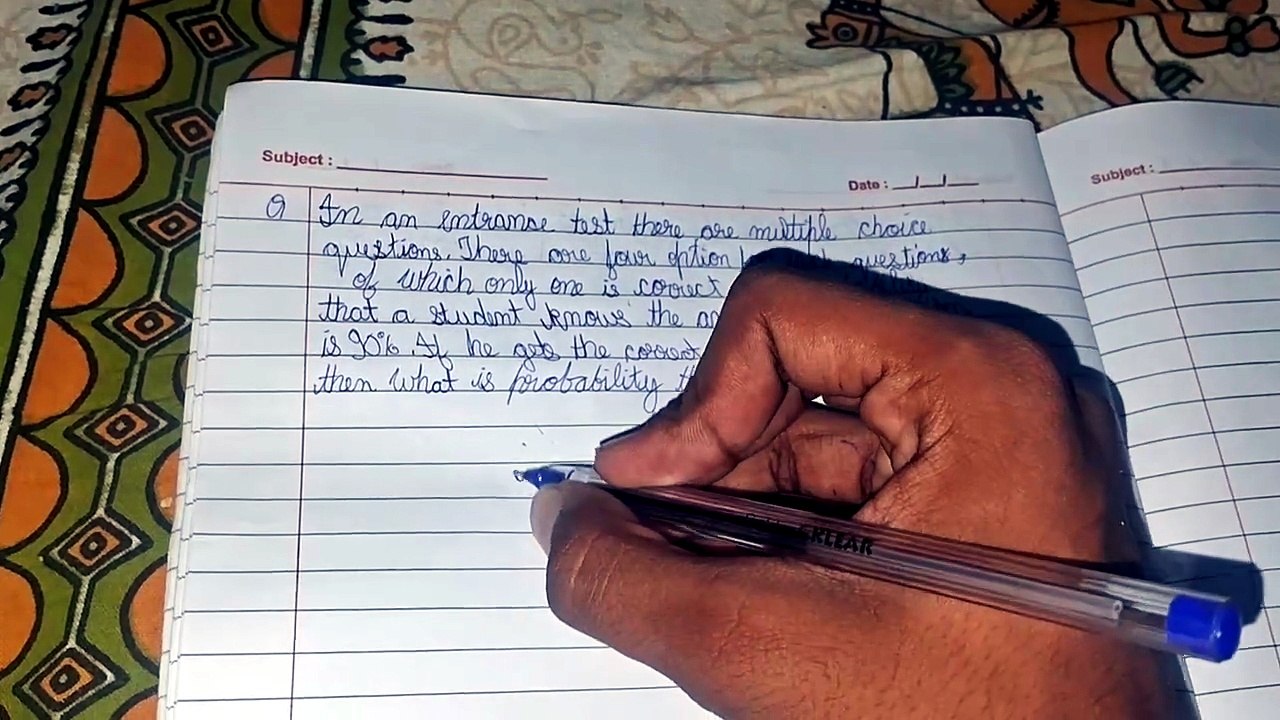 Subject :
Date :
Subject :
Q In an entrance test there are multiple choice
questions. There are four option questions,
of which only one is correct
that a student knows the
is 90%. If he gets the correct
then what is probability
KLEAR